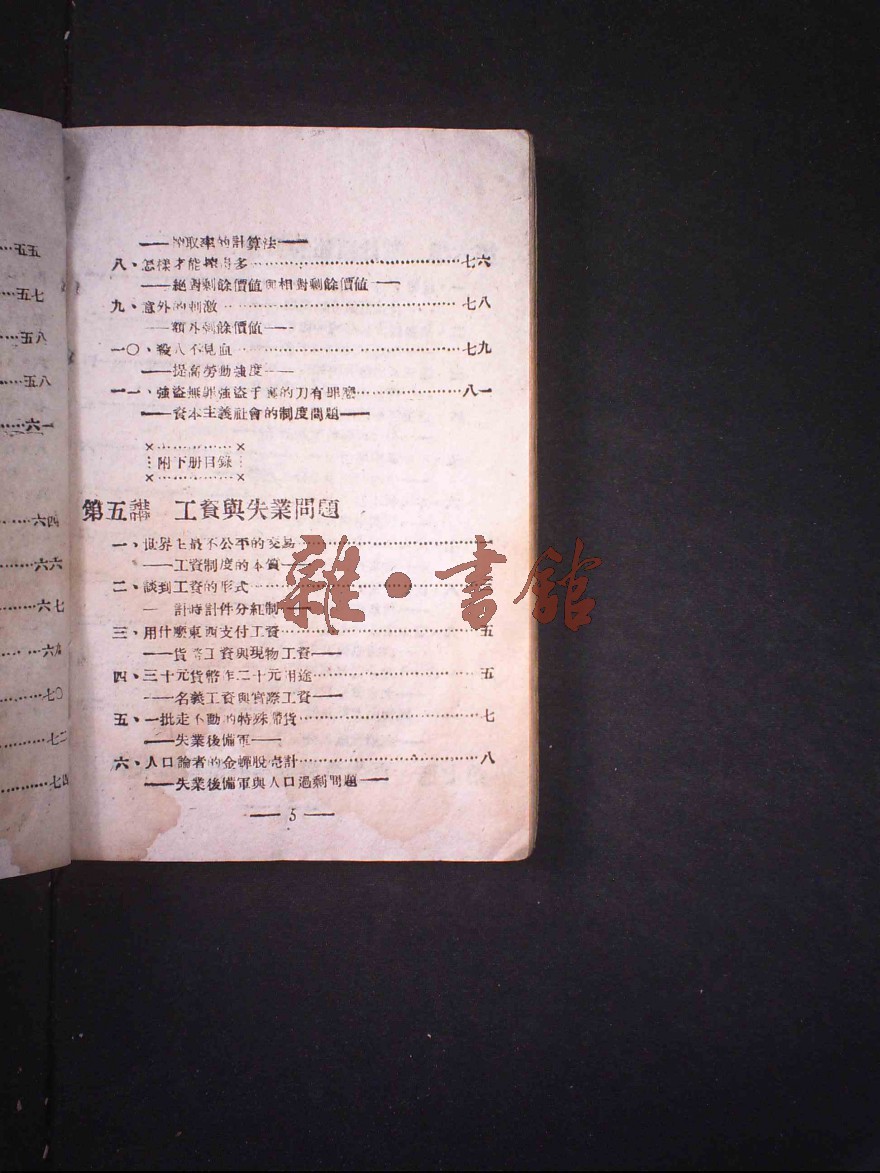 五五
五七
五八
五八
六一
六四
六六
六七
六九
七〇
七二
七四
——榨取率的計算法——
八、怎樣才能榨得多……七六
——絕對剩餘價值與相對剩餘價值——
九、意外的刺激……七八
——額外剩餘價值——
一〇、殺人不見血……七九
——提高勞動強度——
一一、強盜無罪強盜手裏的刀有罪麼……八一
——資本主義社會的制度問題——
附下册目錄
第五講 工資與失業問題
一、世界上最不公平的交易……一
——工資制度的本質——
二、談到工資的形式……三
——計時計件分紅制——
三、用什麼東西支付工資……五
——貨幣工資與現物工資——
四、三十元貨幣作二十元用途……五
——名義工資與實際工資——
五、一批走不動的特殊帶貨……七
——失業後備軍——
六、人口論者的金蟬脫壳計……八
——失業後備軍與人口過剩問題——
— 5 —
雜·書館